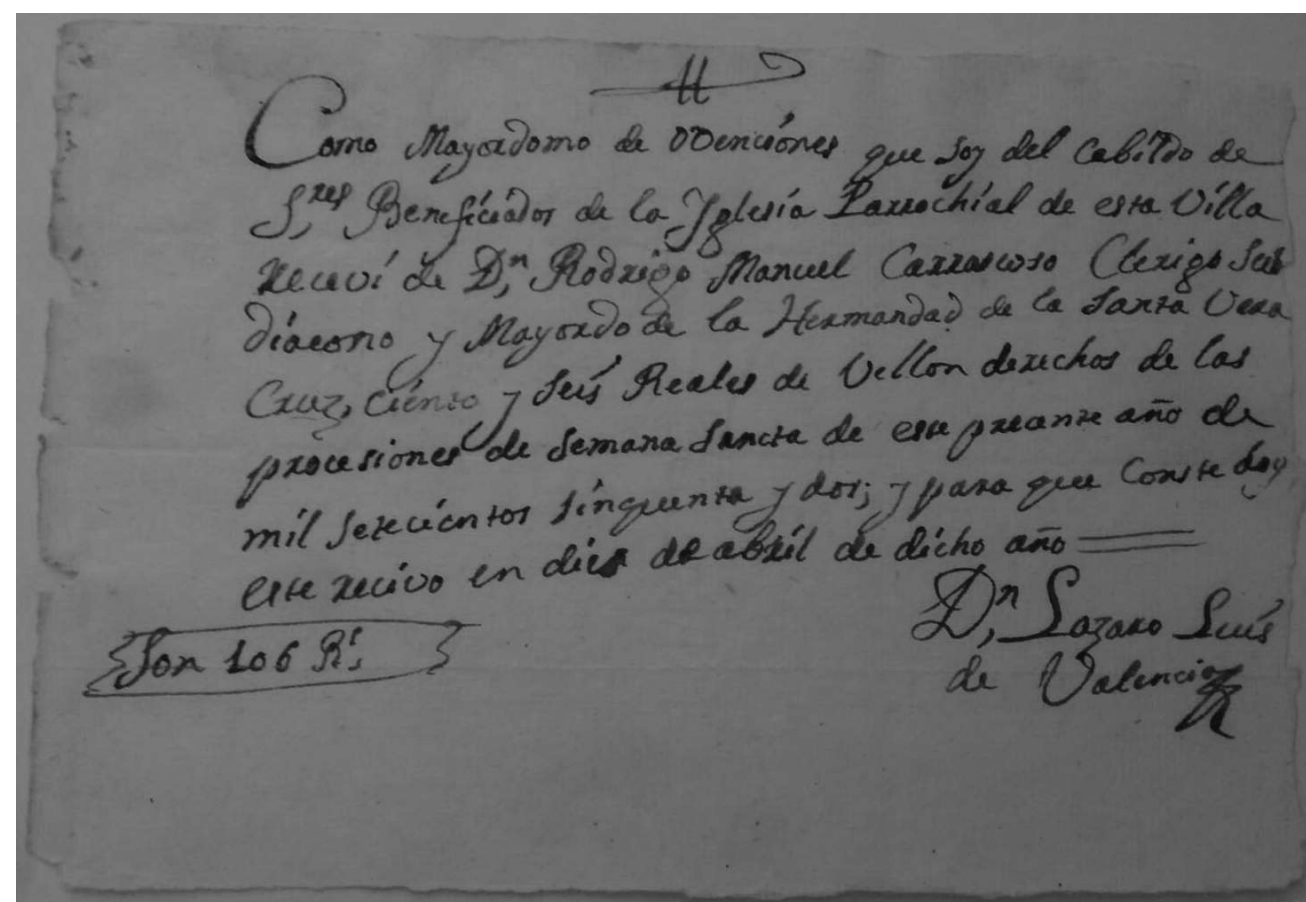 Como Mayordomo de obenciónes que soy del Cabildo de
S,res Beneficiados de la Yglesia Parrochial de esta Villa
receví de D,n Rodrigo Manuel Carrascoso Clerigo Sub
diacono y Mayordo de la Hermandad de la Santa Vera
Cruz, Ciento y seis Reales de Vellon derechos de las
procesiones de Semana Sancta de este preante año de
mil setecientos sinquenta y dos; y para que Conste doy
este recivo en dies de abril de dicho año
Son 106 R.s
D,n Lazaro Luis
de Valencia